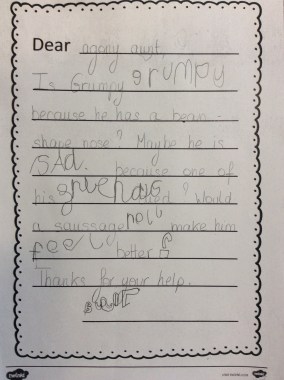 Dear agony aunt,
Is Grumpy grumpy
because he has a bean -
shape nose? Maybe he is
SAd. because one of
his died? Would
a saussage roll make him
feel better?
Thanks for your help.
twinkl